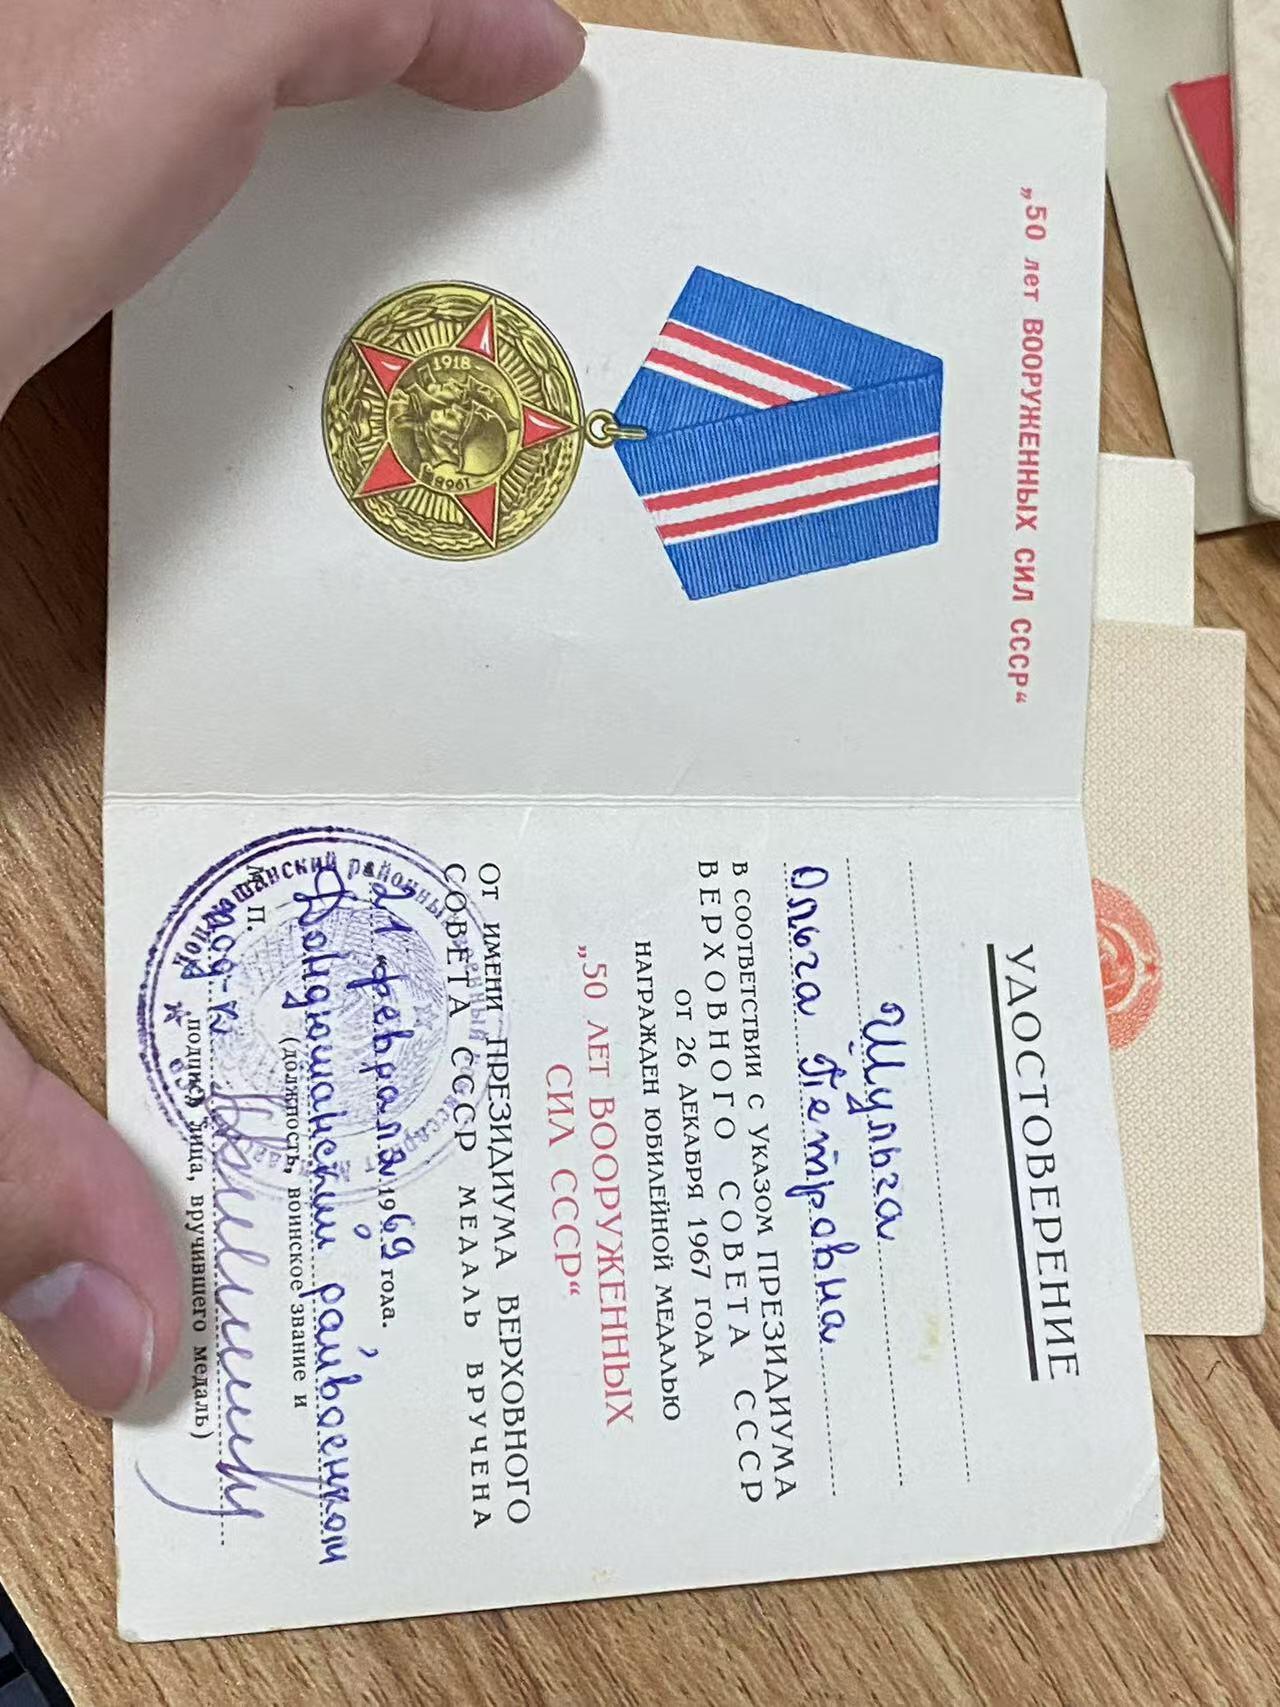 „50 лет ВООРУЖЕННЫХ СИЛ СССР“
1918
1968
УДОСТОВЕРЕНИЕ
Шульга
Ольга Петровна
В СООТВЕТСТВИИ С УКАЗОМ ПРЕЗИДИУМА
ВЕРХОВНОГО СОВЕТА СССР
ОТ 26 ДЕКАБРЯ 1967 ГОДА
НАГРАЖДЕН ЮБИЛЕЙНОЙ МЕДАЛЬЮ
„50 ЛЕТ ВООРУЖЕННЫХ
СИЛ СССР“
ОТ ИМЕНИ ПРЕЗИДИУМА ВЕРХОВНОГО
СОВЕТА СССР МЕДАЛЬ ВРУЧЕНА
„21“ февраля 1969 года.
Дондюшанский райвоенком
(должность, воинское звание и
М. П. под-к
подпись лица, вручившего медаль)